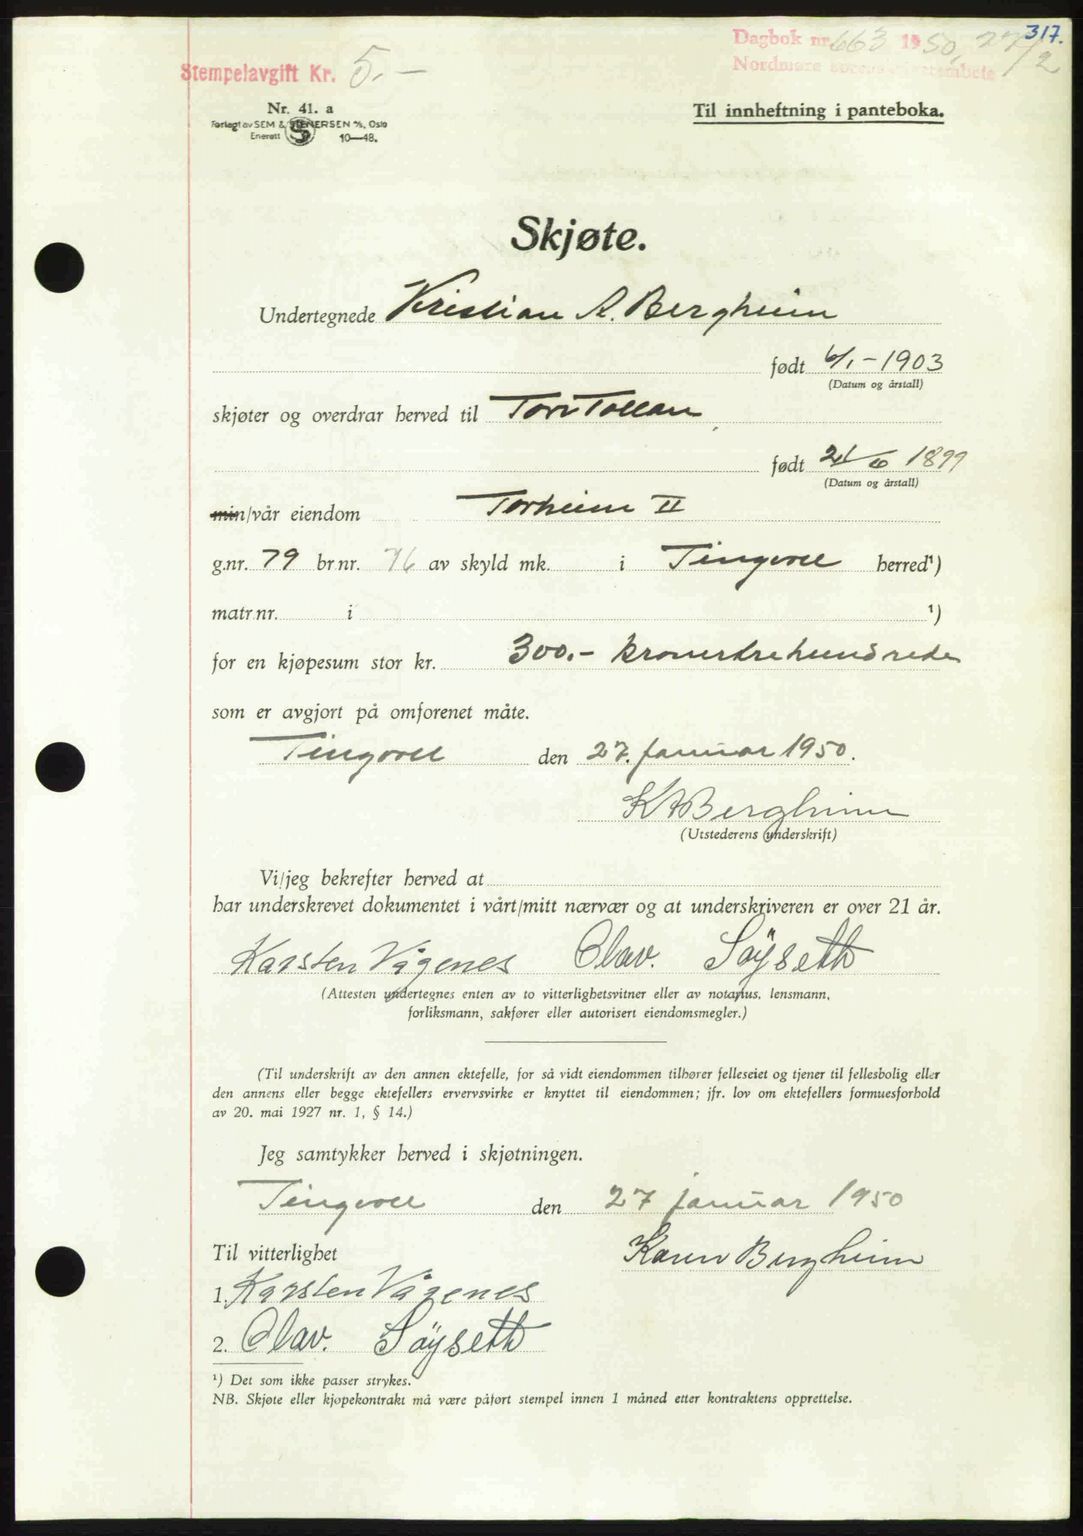 317.
Dagbok nr. 663 1950, 27/2
Nordmøre sorenskriverembete
Stempelavgift Kr. 5.-
Nr. 41. a
Forlagt av SEM & STENERSEN A/S, Oslo
Enerett 10—48.
Til innheftning i panteboka.
Skjøte.
Undertegnede Kristian A. Bergheim
født 6/1-1903
(Datum og årstall)
skjøter og overdrar herved til Tore Tollan
født 21/6 1899
(Datum og årstall)
min/vår eiendom Torheim II
g.nr. 79 br.nr. 76 av skyld mk. i Tingvoll herred¹)
matr.nr. i ¹)
for en kjøpesum stor kr. 300.- kronertrehundrede
som er avgjort på omforenet måte.
Tingvoll den 27. januar 1950.
K A Bergheim
(Utstederens underskrift)
Vi/jeg bekrefter herved at
har underskrevet dokumentet i vårt/mitt nærvær og at underskriveren er over 21 år.
Karsten Vågenes Olav. Söyseth
(Attesten undertegnes enten av to vitterlighetsvitner eller av notarius, lensmann,
forliksmann, sakfører eller autorisert eiendomsmegler.)
(Til underskrift av den annen ektefelle, for så vidt eiendommen tilhører felleseiet og tjener til fellesbolig eller
den annens eller begge ektefellers ervervsvirke er knyttet til eiendommen; jfr. lov om ektefellers formuesforhold
av 20. mai 1927 nr. 1, § 14.)
Jeg samtykker herved i skjøtningen.
Tingvoll den 27 januar 1950
Til vitterlighet Karen Bergheim
1. Karsten Vågenes
2. Olav. Söyseth
¹) Det som ikke passer strykes.
NB. Skjøte eller kjøpekontrakt må være påført stempel innen 1 måned etter kontraktens opprettelse.